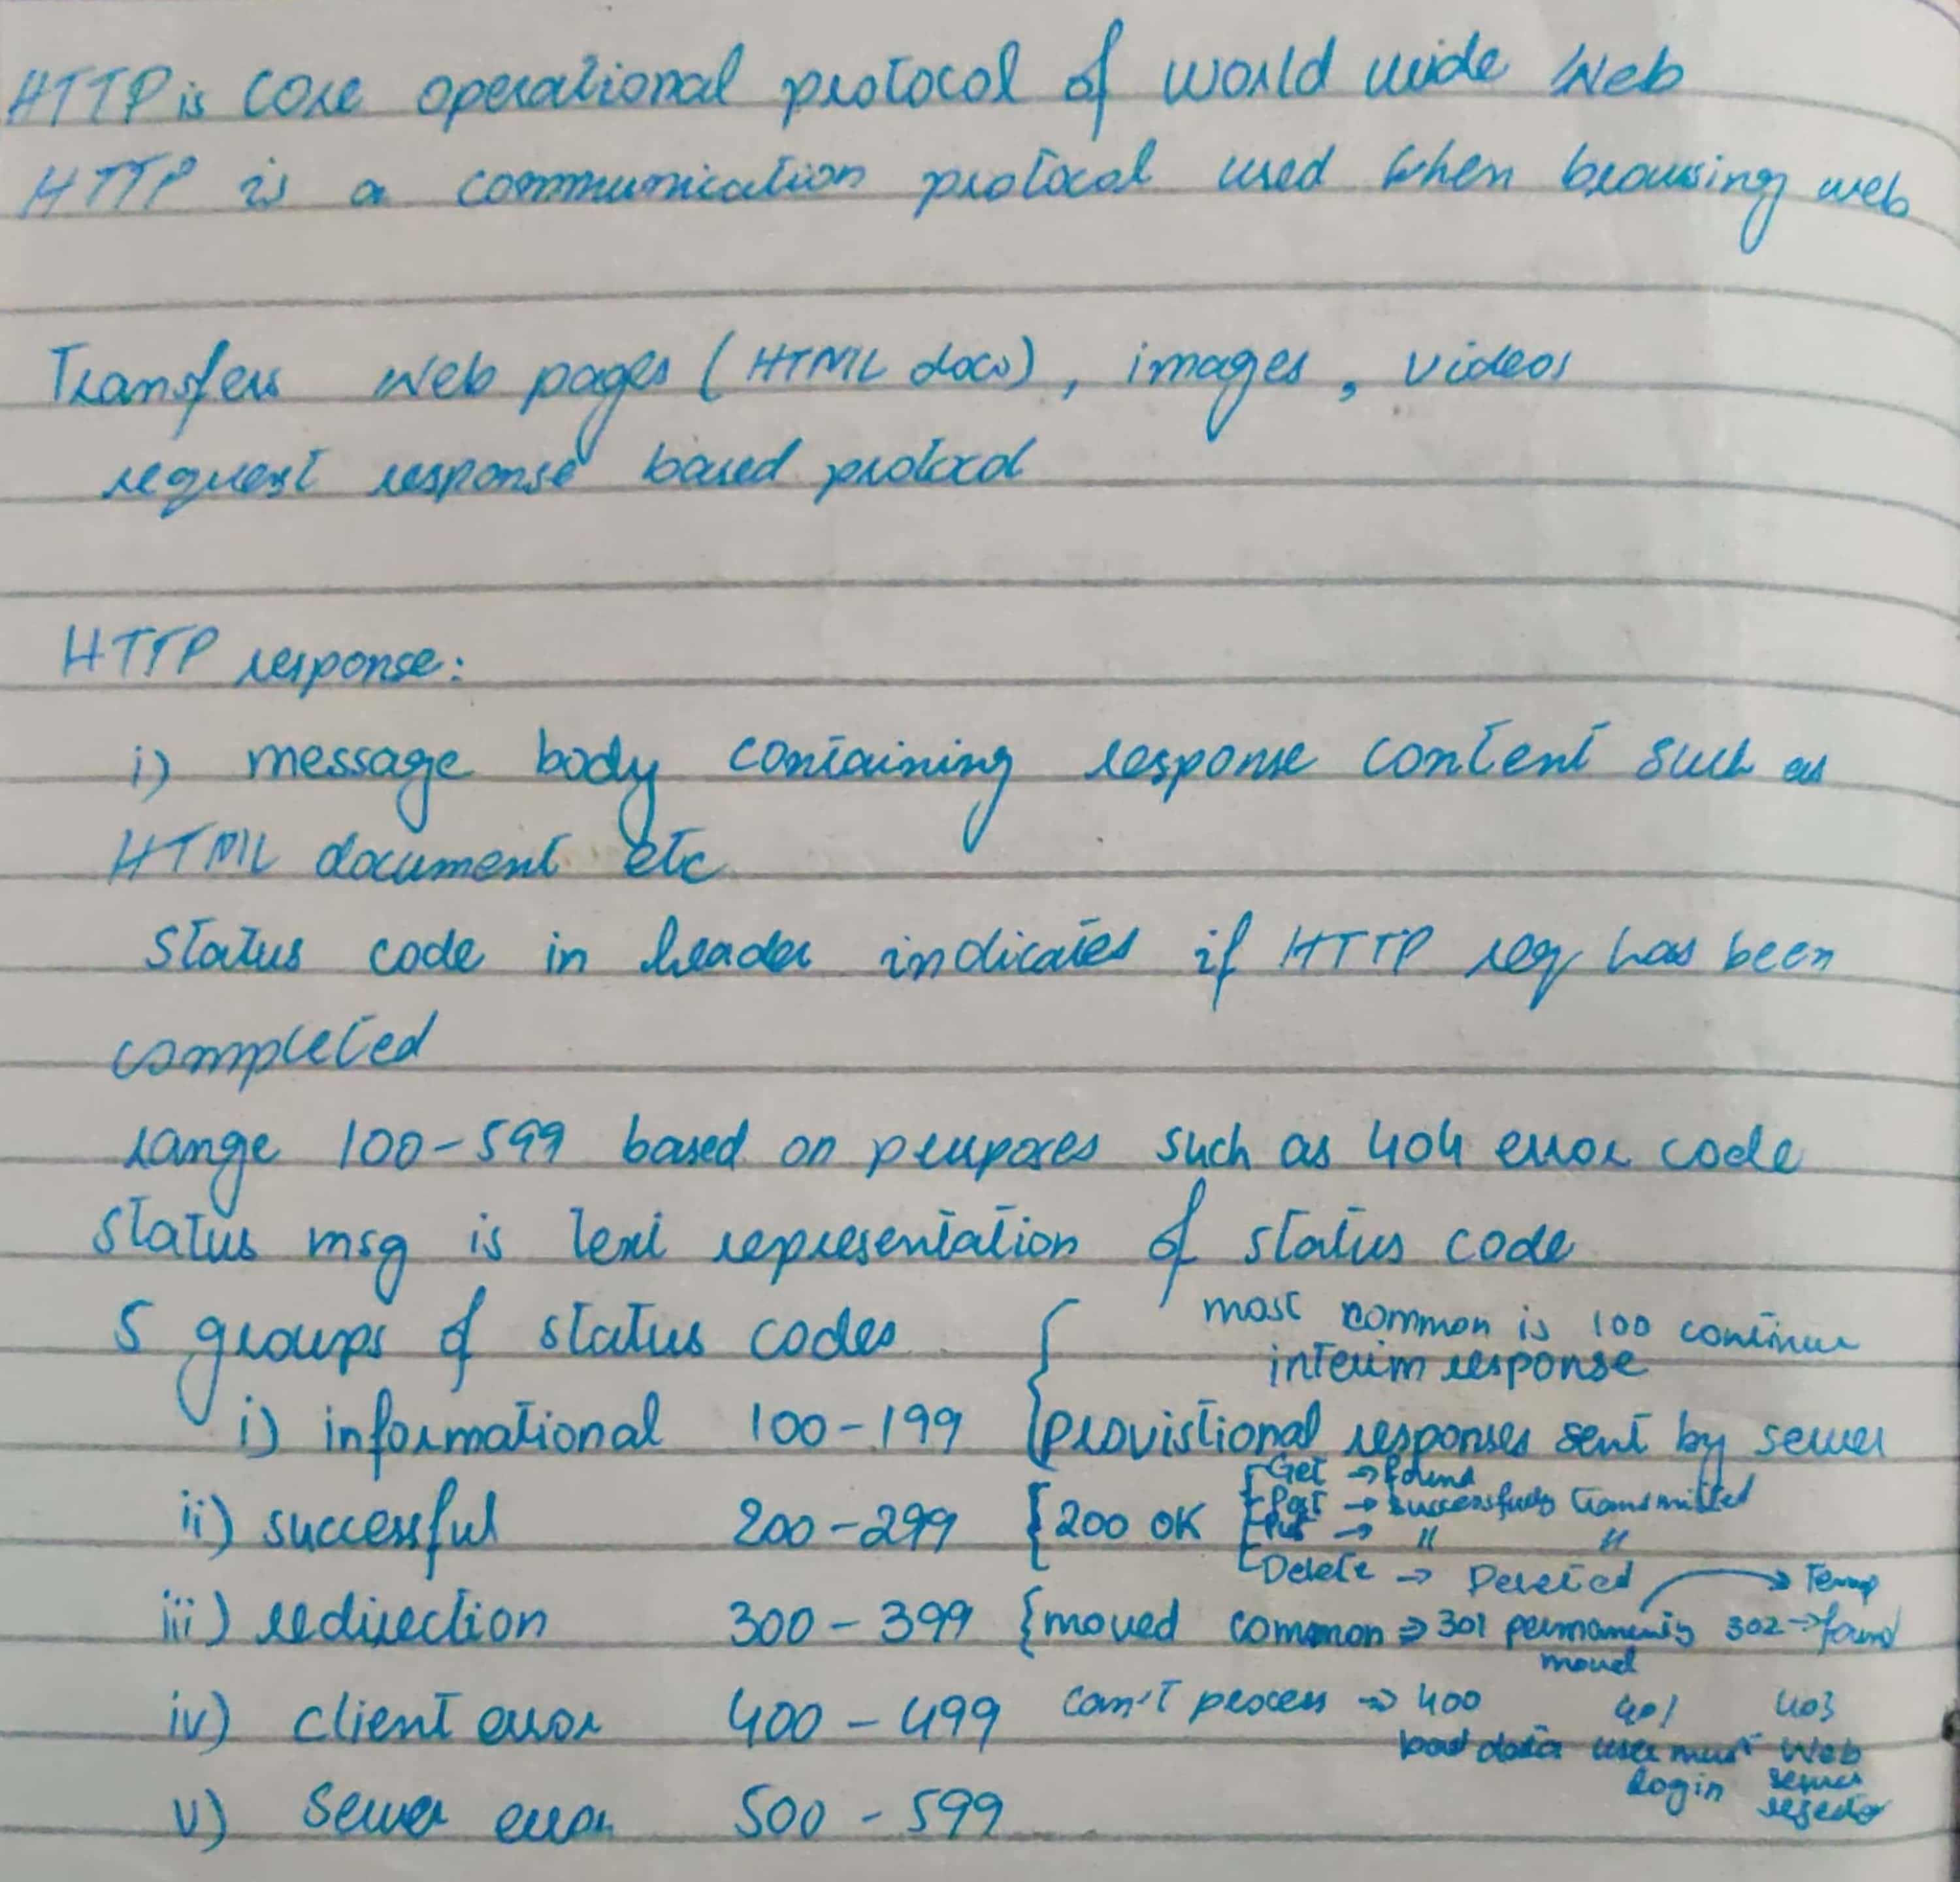 HTTP is core operational protocol of world wide Web
HTTP is a communication protocol used when browsing web
Transfers web pages (HTML docs), images, videos
request response based protocol
HTTP response:
i) message body containing response content such as
HTML document etc
Status code in header indicates if HTTP req has been
completed
range 100-599 based on purposes such as 404 error code
status msg is text representation of status code
5 groups of status codes
most common is 100 continue
interim response
i) informational 100-199 { provistional responses sent by server
ii) successful 200-299 { 200 OK
Get → found
Post → successfully transmitted
Put → " "
Delete → Deleted
→ Temp
iii) redirection 300-399 { moved common ⇒ 301 permanently 302 → found
moved
iv) client error 400-499 can't process → 400 401 403
bad data user must Web
login server
rejects
v) Server error 500-599